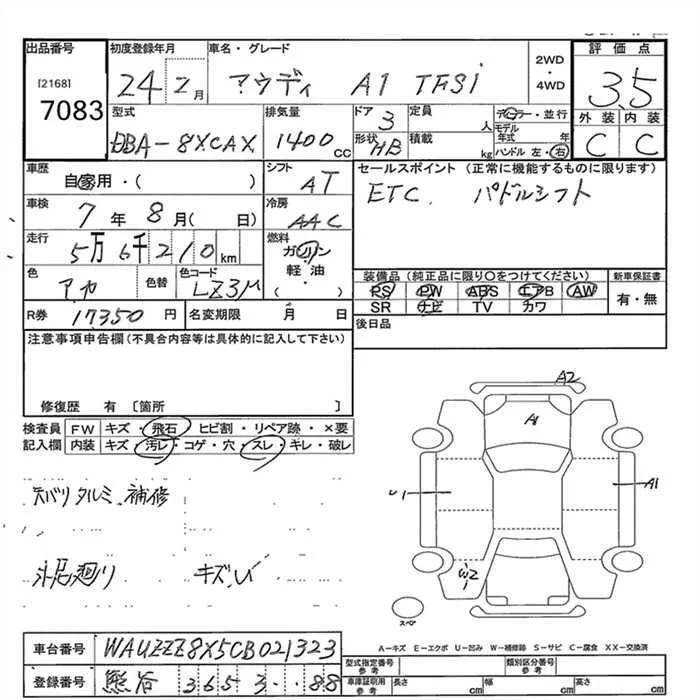 出品番号 初度登録年月 車名・グレード 2WD・4WD 評価点
[2168] 7083 24 2月 アウディ A1 TFSi 3.5
型式 排気量 ドア 3 定員 人 ディーラー・並行 外装 内装
DBA-8XCAX 1400cc 形状 HB 積載 kg モデル年式 年 ハンドル 左・右 C C
車歴 自家用・( ) シフト AT セールスポイント (正常に機能するものに限ります)
車検 7年 8月( 日) 冷房 AAC ETC. パドルシフト
走行 5万6千210km 燃料 ガソリン
色 アカ 色替 色コード LZ3M 軽油・( ) 装備品(純正品に限り○をつけてください) 新車保証書
PS PW ABS エアB AW 有・無
R券 17350円 名変期限 月 日 SR ナビ TV カワ
注意事項申告欄(不具合内容等は具体的に記入して下さい) 後日品
修復歴 有 〔箇所 〕
検査員 FW キズ・飛石・ヒビ割・リペア跡・×要
記入欄 内装 キズ・汚レ・コゲ・穴・スレ・キレ・破レ
A2
A1
U1 A1
天バリ タルミ 補修
W2
キズ、U
スペア
A-キズ E-エクボ U-凹み W-補修跡 S-サビ C-腐食 XX-交換済
車台番号 WAUZZZ8X5CB021323
登録番号 熊谷 365 88
型式指定番号 参考 類別区分番号 参考
車庫証明用 参考 長さ cm 幅 cm 高さ cm